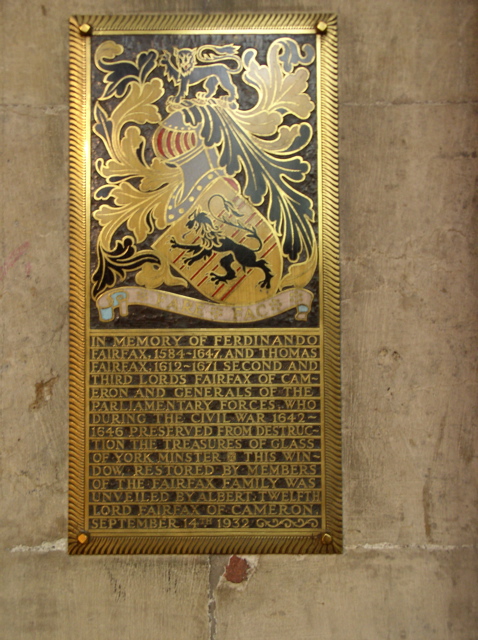 FARE FAC
IN MEMORY OF FERDINANDO
FAIRFAX, 1584–1647 AND THOMAS
FAIRFAX, 1612–1671, SECOND AND
THIRD LORDS FAIRFAX OF CAM–
ERON AND GENERALS OF THE
PARLIAMENTARY FORCES, WHO
DURING THE CIVIL WAR 1642–
1646 PRESERVED FROM DESTRUC–
TION THE TREASURES OF GLASS
OF YORK MINSTER THIS WIN–
DOW, RESTORED BY MEMBERS
OF THE FAIRFAX FAMILY WAS
UNVEILED BY ALBERT, TWELFTH
LORD FAIRFAX OF CAMERON
SEPTEMBER 14TH 1932